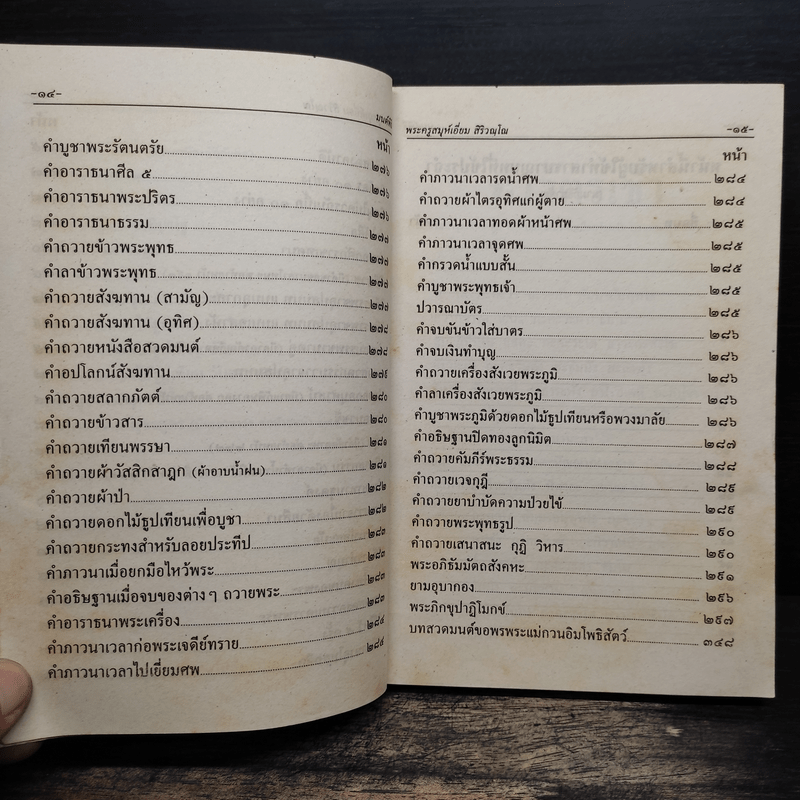 -๑๔-
มนต์พิ
หน้า
คำบูชาพระรัตนตรัย ๒๗๖
คำอาราธนาศีล ๕ ๒๗๖
คำอาราธนาพระปริตร ๒๗๖
คำอาราธนาธรรม ๒๗๗
คำถวายข้าวพระพุทธ ๒๗๗
คำลาข้าวพระพุทธ ๒๗๗
คำถวายสังฆทาน (สามัญ) ๒๗๗
คำถวายสังฆทาน (อุทิศ) ๒๗๘
คำถวายหนังสือสวดมนต์ ๒๗๘
คำอปโลกน์สังฆทาน ๒๗๙
คำถวายสลากภัตต์ ๒๘๐
คำถวายข้าวสาร ๒๘๐
คำถวายเทียนพรรษา ๒๘๑
คำถวายผ้าวัสสิกสาฎก (ผ้าอาบน้ำฝน) ๒๘๑
คำถวายผ้าป่า ๒๘๒
คำถวายดอกไม้ธูปเทียนเพื่อบูชา ๒๘๒
คำถวายกระทงสำหรับลอยประทีป ๒๘๓
คำภาวนาเมื่อยกมือไหว้พระ ๒๘๓
คำอธิษฐานเมื่อจบของต่างๆ ถวายพระ ๒๘๓
คำอาราธนาพระเครื่อง ๒๘๓
คำภาวนาเวลาก่อพระเจดีย์ทราย ๒๘๔
คำภาวนาเวลาไปเยี่ยมศพ ๒๘๔
พระครูสมุห์เอี่ยม สิริวณฺโณ
-๑๕-
หน้า
คำภาวนาเวลารดน้ำศพ ๒๘๔
คำถวายผ้าไตรอุทิศแก่ผู้ตาย ๒๘๔
คำภาวนาเวลาทอดผ้าหน้าศพ ๒๘๕
คำภาวนาเวลาจุดศพ ๒๘๕
คำกรวดน้ำแบบสั้น ๒๘๕
คำบูชาพระพุทธเจ้า ๒๘๕
ปวารณาบัตร ๒๘๕
คำจบขันข้าวใส่บาตร ๒๘๖
คำจบเงินทำบุญ ๒๘๖
คำถวายเครื่องสังเวยพระภูมิ ๒๘๖
คำลาเครื่องสังเวยพระภูมิ ๒๘๖
คำบูชาพระภูมิด้วยดอกไม้ธูปเทียนหรือพวงมาลัย ๒๘๖
คำอธิษฐานปิดทองลูกนิมิต ๒๘๗
คำถวายคัมภีร์พระธรรม ๒๘๘
คำถวายเวจกุฎี ๒๘๙
คำถวายยาบำบัดความป่วยไข้ ๒๘๙
คำถวายพระพุทธรูป ๒๙๐
คำถวายเสนาสนะ กุฏิ วิหาร ๒๙๐
พระอภิธัมมัตถสังคหะ ๒๙๑
ยามอุบากอง ๒๙๖
พระภิกขุปาฏิโมกข์ ๒๙๗
บทสวดมนต์ขอพรพระแม่กวนอิมโพธิสัตว์ ๓๔๘